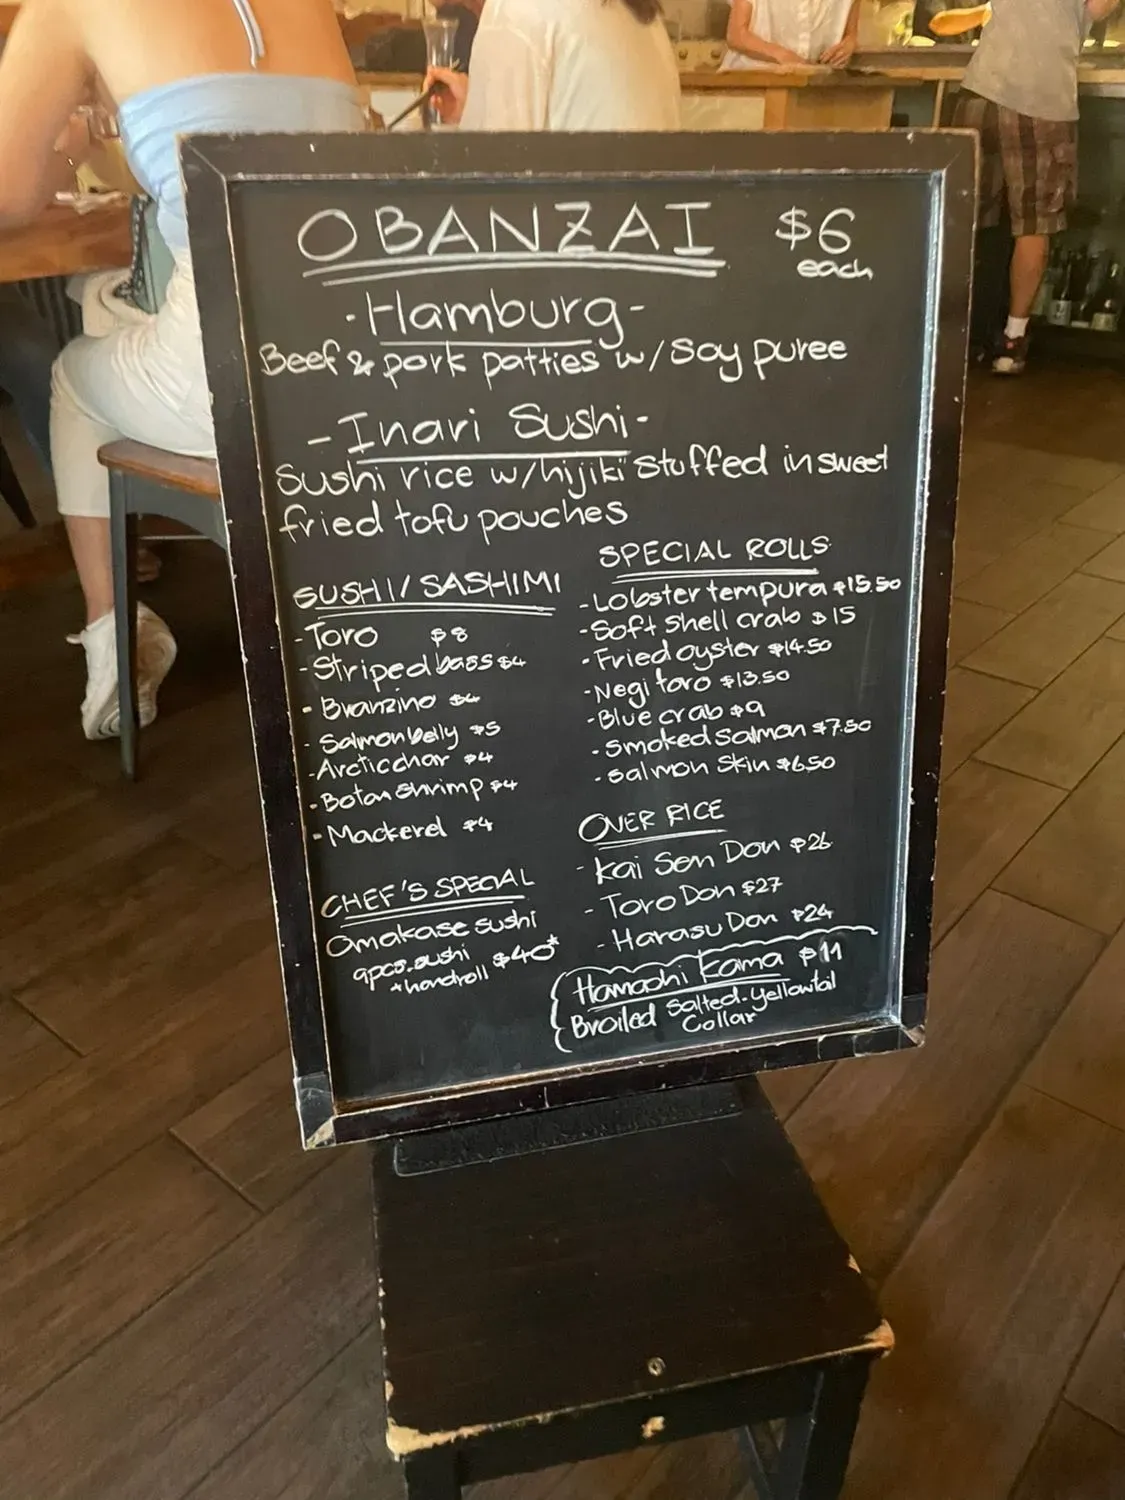 OBANZAI $6
each
-Hamburg-
Beef & pork patties w/ Soy puree
-Inari Sushi-
Sushi rice w/hijiki stuffed in sweet
fried tofu pouches
SUSHI/SASHIMI
-Toro $8
-Striped bass $4
- Branzino $4
- Salmon belly $5
-Arctic char $4
-Botan Shrimp $4
-Mackerel $4
CHEF'S SPECIAL
Omakase sushi
9pcs.sushi
+handroll $40*
SPECIAL ROLLS
-Lobster tempura $15.50
-Soft shell crab $15
-Fried oyster $14.50
-Negi toro $13.50
-Blue crab $9
-Smoked salmon $7.50
-Salmon Skin $6.50
OVER RICE
- Kai Sen Don $26
- Toro Don $27
- Harasu Don $24
Hamachi Kama $11
Broiled Salted-Yellowtail
Collar